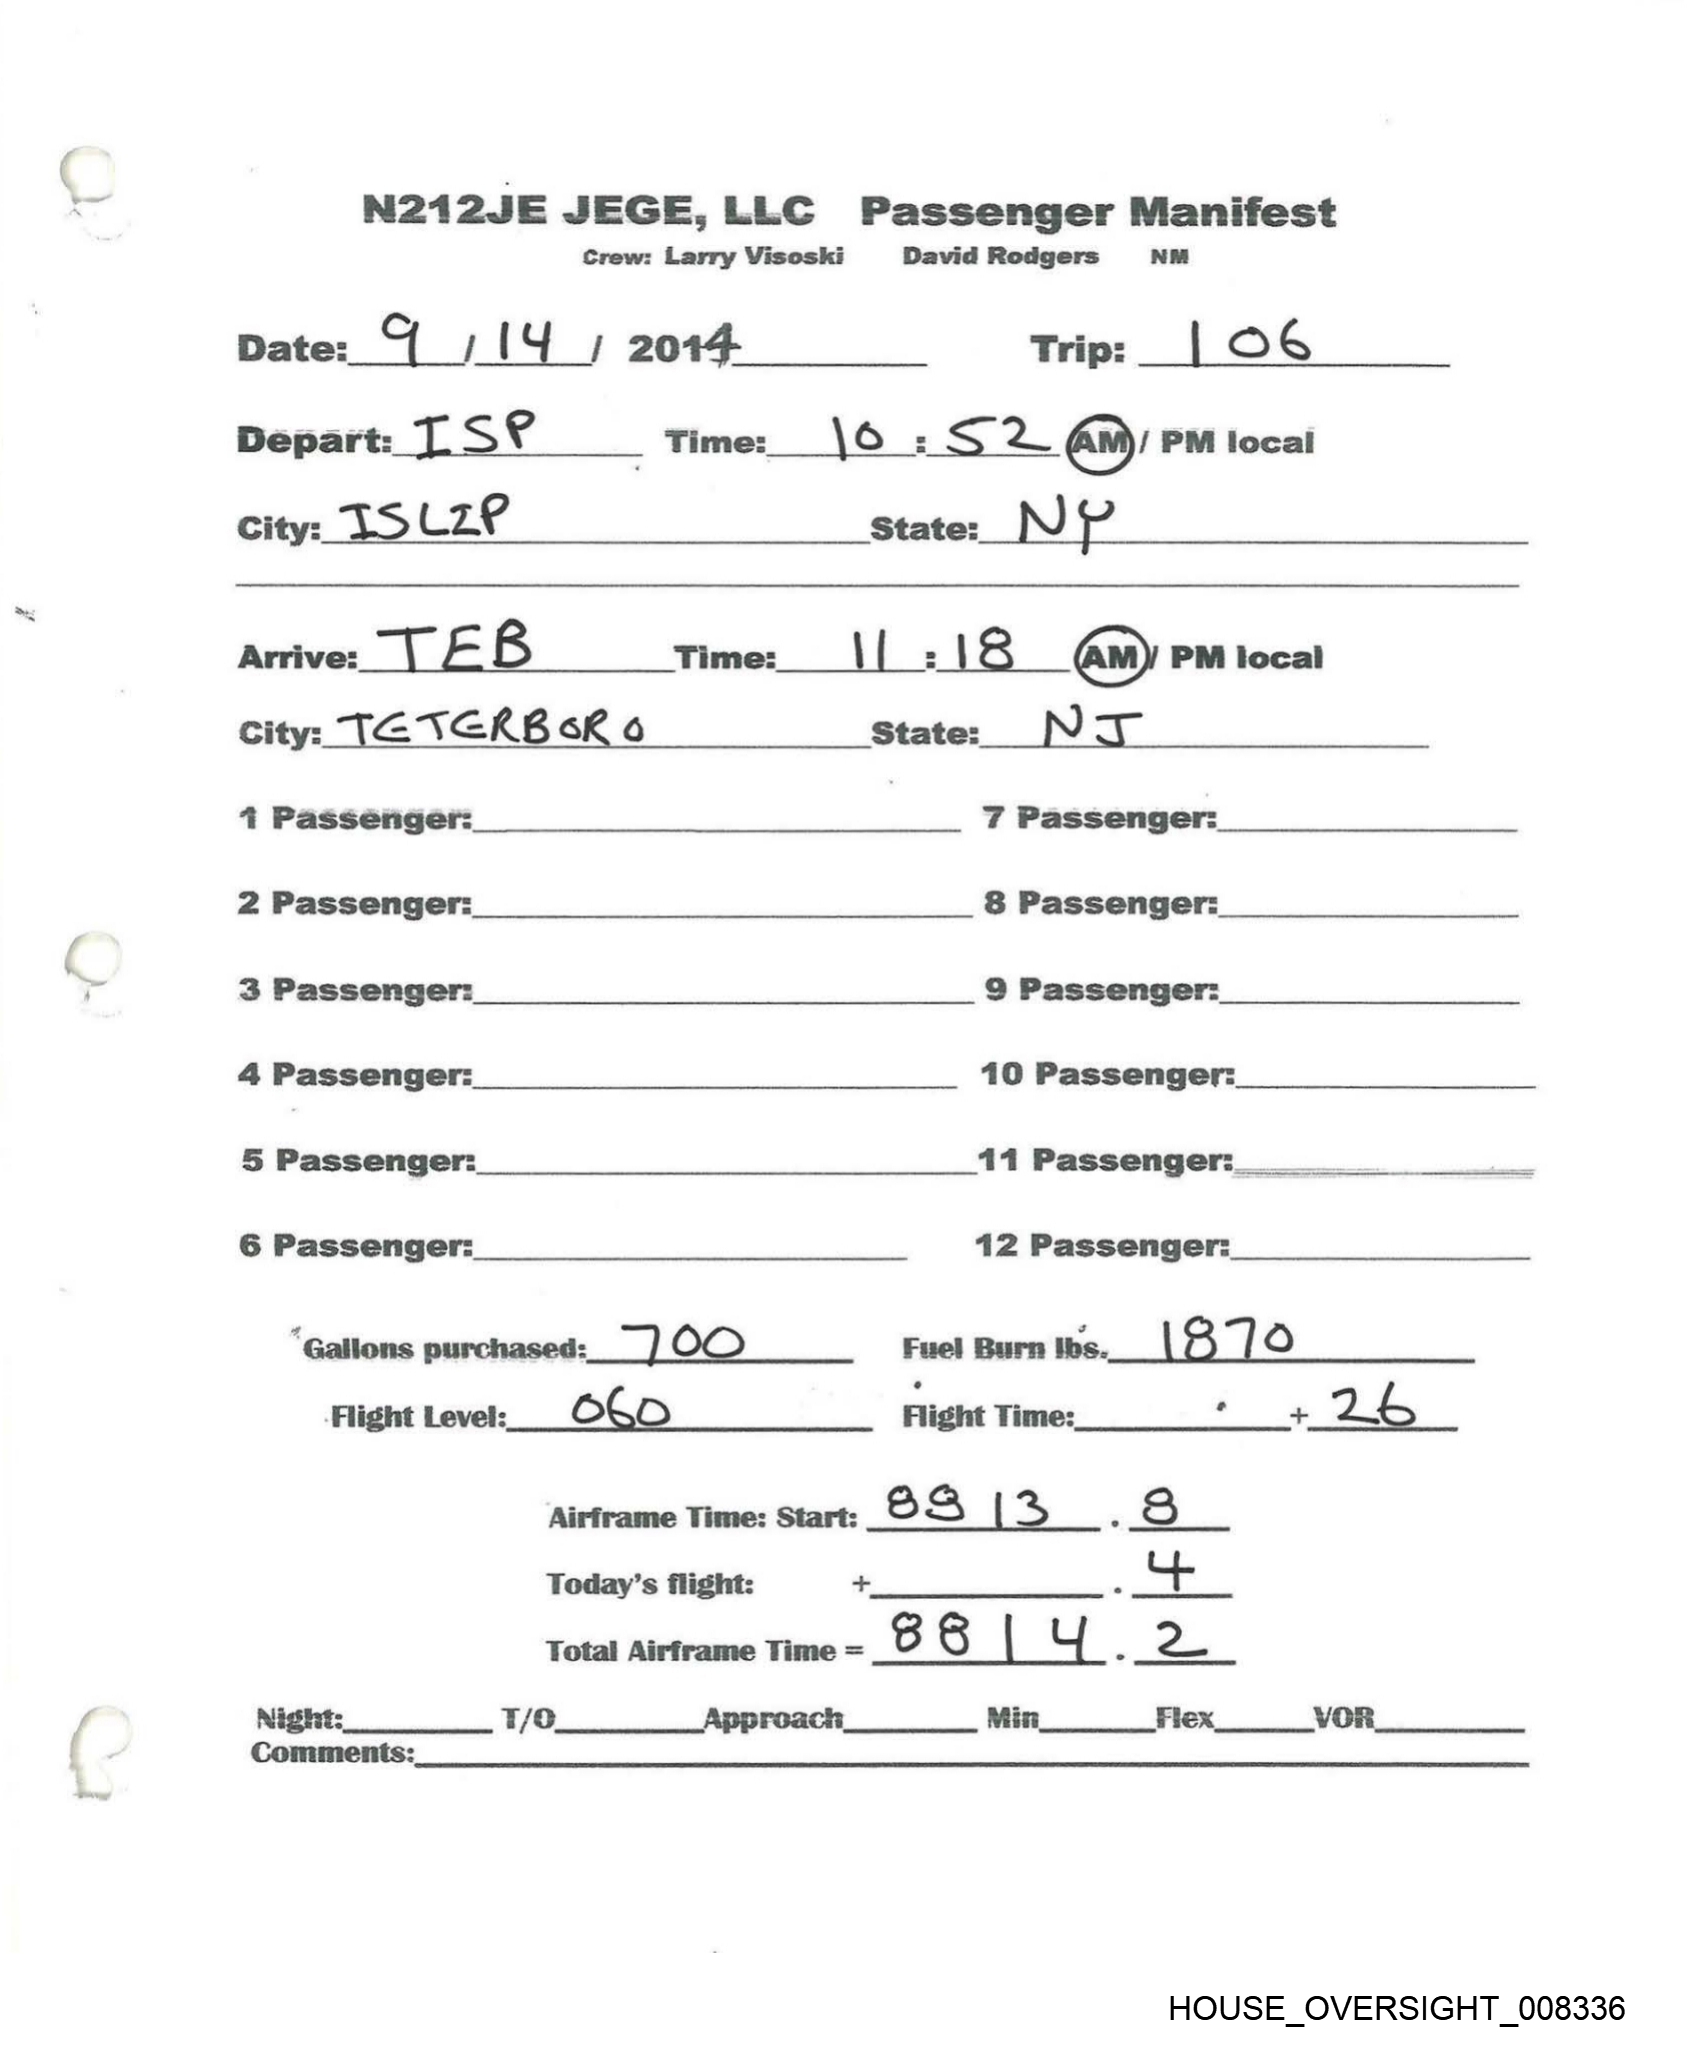 N212JE JEGE, LLC Passenger Manifest
Crew: Larry Visoski David Rodgers NM
Date: 9 / 14 / 2014 Trip: 106
Depart: ISP Time: 10 : 52 AM / PM local
City: ISLIP State: NY
Arrive: TEB Time: 11 : 18 AM / PM local
City: TETERBORO State: NJ
1 Passenger: 7 Passenger:
2 Passenger: 8 Passenger:
3 Passenger: 9 Passenger:
4 Passenger: 10 Passenger:
5 Passenger: 11 Passenger:
6 Passenger: 12 Passenger:
Gallons purchased: 700 Fuel Burn lbs. 1870
Flight Level: 060 Flight Time: + 26
Airframe Time: Start: 8813 . 8
Today's flight: + . 4
Total Airframe Time = 8814 . 2
Night: T/O Approach Min Flex VOR
Comments:
HOUSE_OVERSIGHT_008336